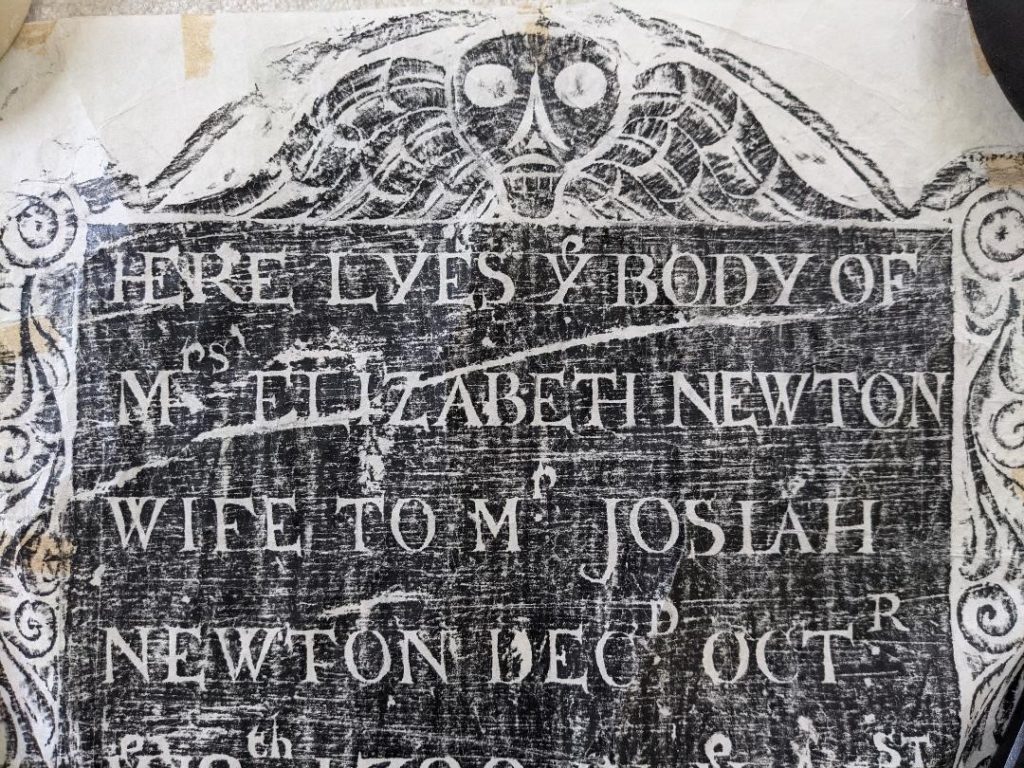 HERE LYES Yᵉ BODY OF
Mʳˢ ELIZABETH NEWTON
WIFE TO Mʳ JOSIAH
NEWTON DECᴰ OCTᴿ